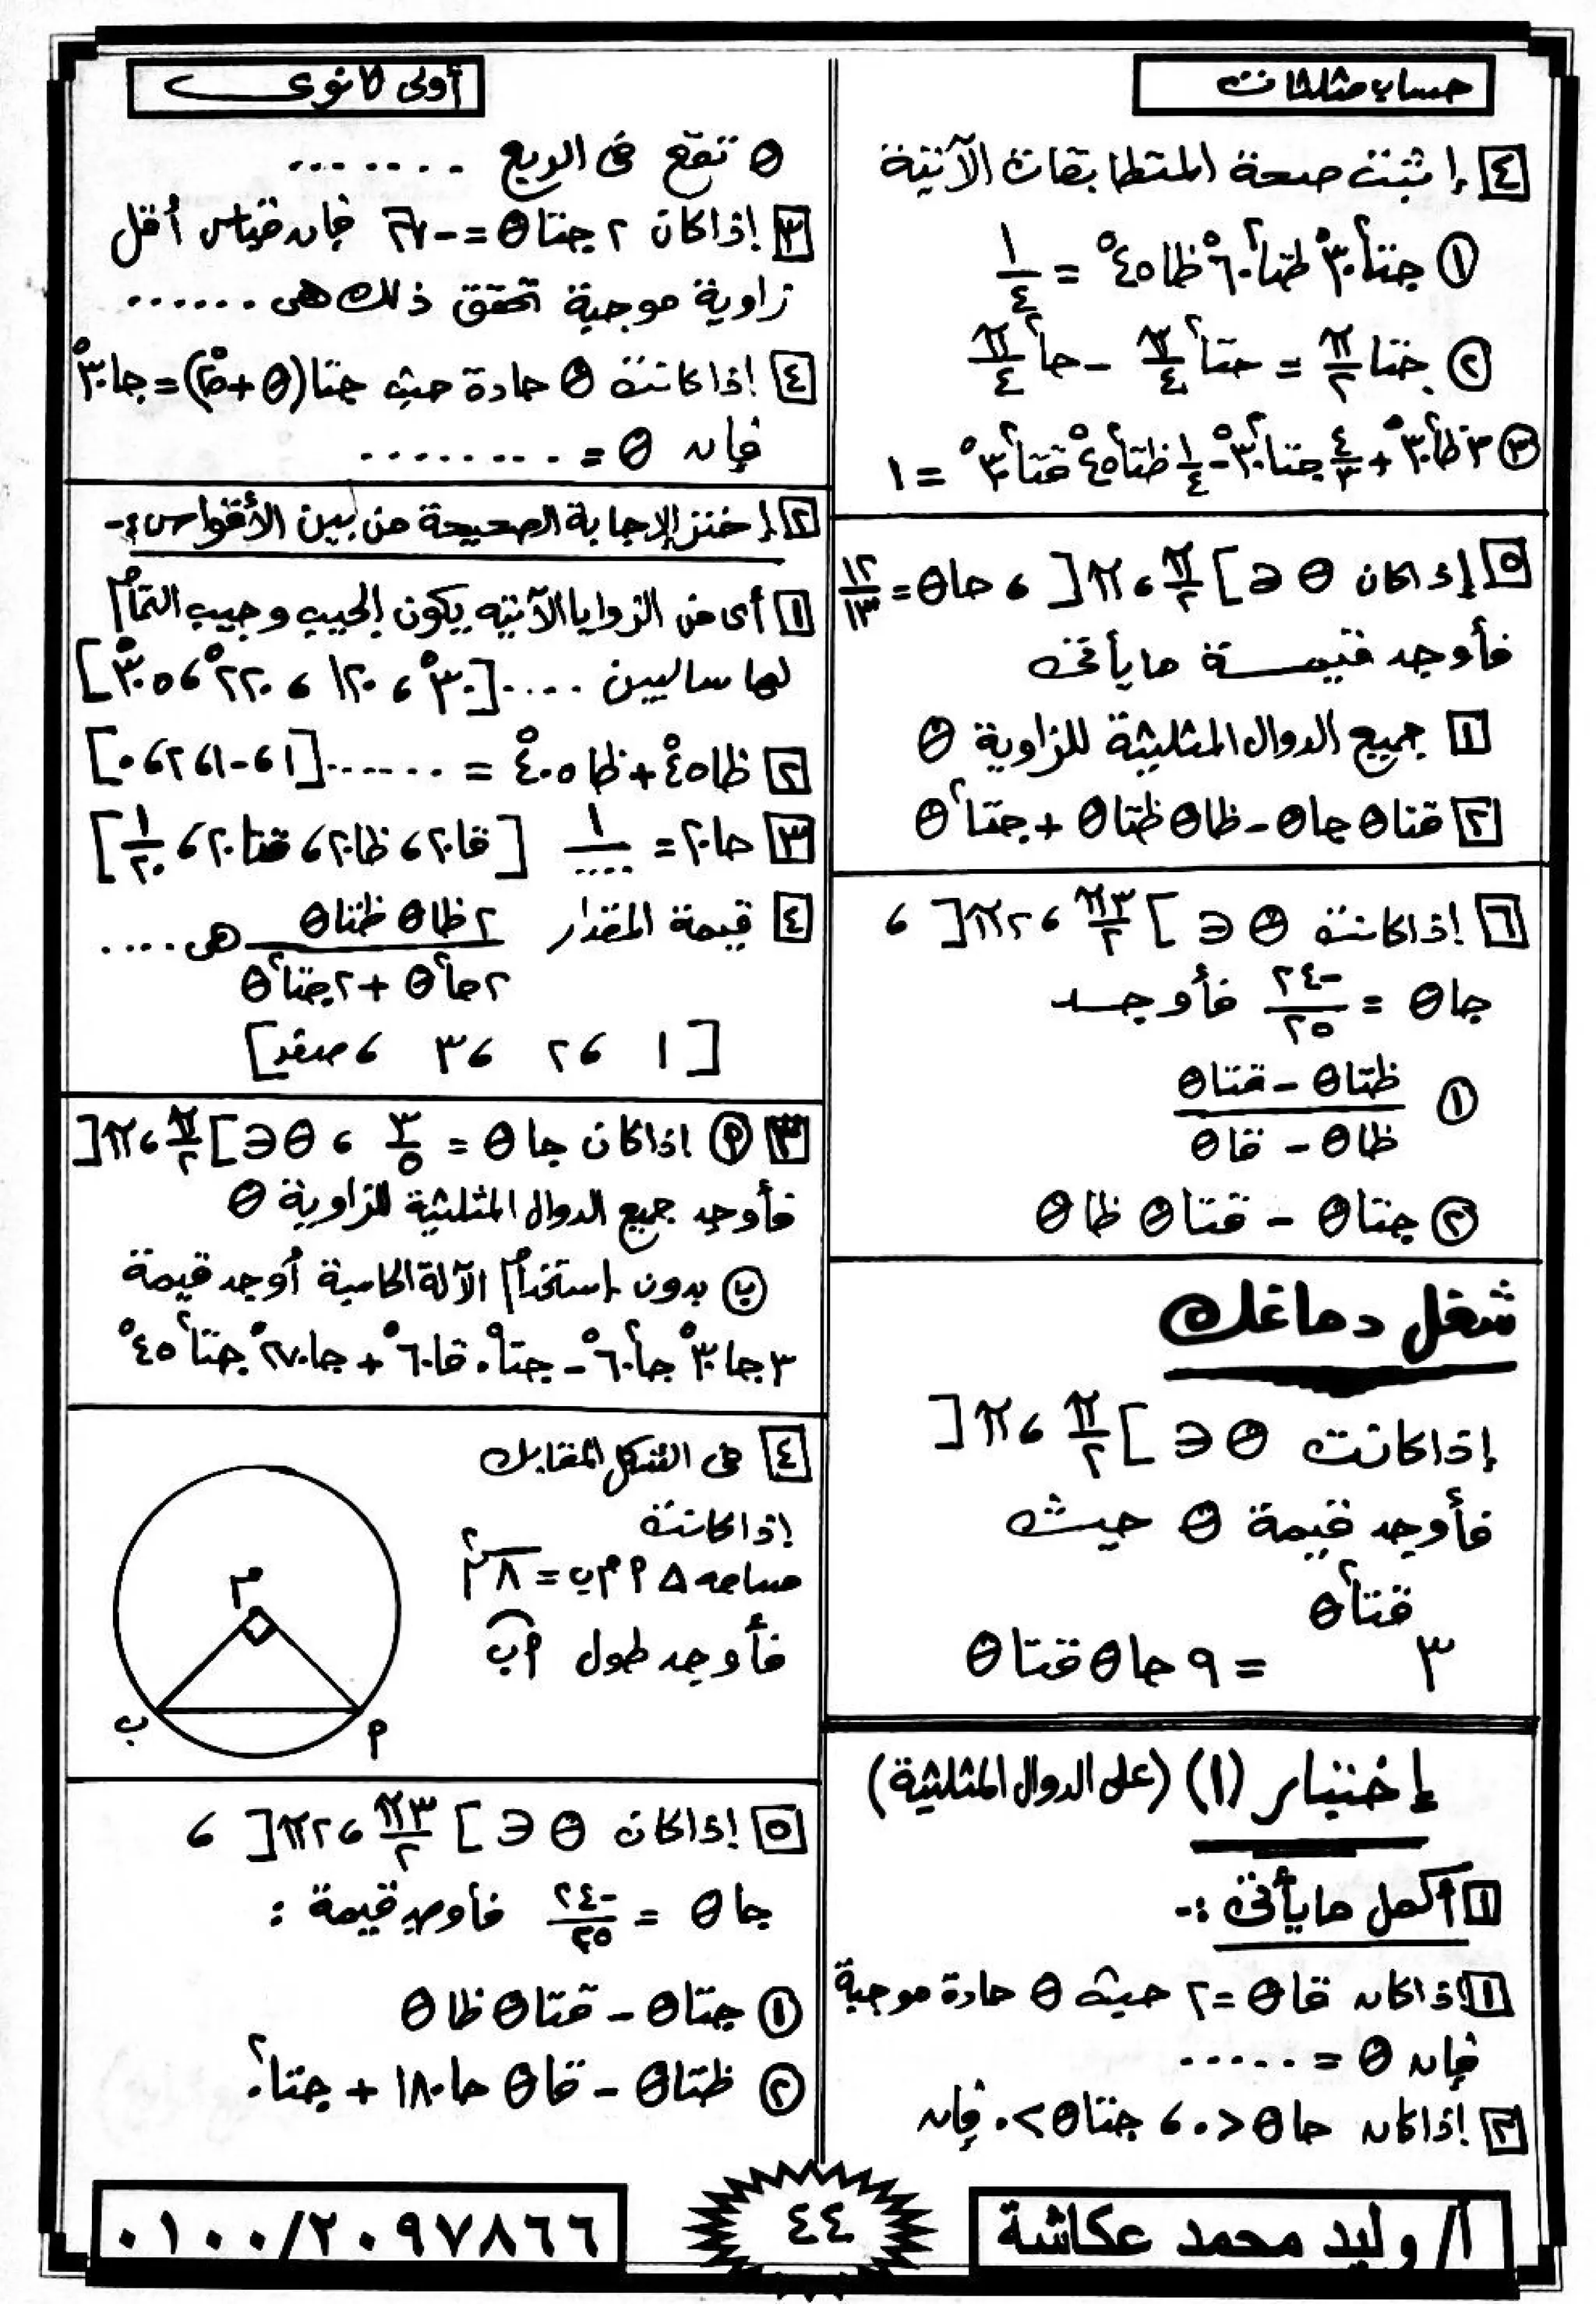 حساب مثلثات
أولى ثانوى
٤ إثبت صحة المتطابقات الآتية
١ جتا٢ ٣٠° ظتا٢ ٦٠° ظا ٤٥° = ١/٤
٢ جتا π/٢ = جتا٢ π/٤ - جا٢ π/٤
٣ ٣ ظا٢ ٣٠° + ٤/٣ جتا٢ ٣٠° - ١/٤ ظتا٢ ٤٥° قتا٢ ٣٠° = ١
٥ إذا كان θ ∈ ]π/٢ ، π[ ، جا θ = ١٢/١٣
فأوجد قيمة ما يأتى
١ جميع الدوال المثلثية للزاوية θ
٢ قتا θ جا θ - ظا θ ظتا θ + جتا٢ θ
٦ إذا كانت θ ∈ ]٣π/٢ ، ٢π[ ،
جا θ = -٢٤/٢٥ فأوجد
١ (ظتا θ - قتا θ)/(ظا θ - قا θ)
٢ جتا θ - قتا θ ظا θ
شغل دماغك
إذا كانت θ ∈ ]π/٢ ، π[
فأوجد قيمة θ حيث
٣^(قتا٢ θ) = ٩ جا θ قتا θ
إختبار (١) (على الدوال المثلثية)
١ أكمل ما يأتى :-
١ إذا كان قا θ = ٢ حيث θ حادة موجبة
فإن θ = .....
٢ إذا كان جا θ < ٠ ، جتا θ > ٠ فإن
θ تقع فى الربع .......
٣ إذا كان ٢ جتا θ = -√٣ فإن قياس أقل
زاوية موجبة تحقق ذلك هى ......
٤ إذا كانت θ حادة حيث جتا (θ + ٢٥°) = جا ٣٠°
فإن θ = .........
٢ إختر الإجابة الصحيحة من بين الأقواس :-
١ أى من الزوايا الآتيه يكون الجيب وجيب التمام
لها سالبين .....[٣٠° ، ١٢٠ ، ٢٢٠° ، ٥٠٣°]
٢ ظا ٤٥° + ظا ٤٠٥° = .......[١ ، -١ ، ٢ ، ٠]
٣ جا ٢٠ = ١/.... [قا ٢٠ ، ظا ٢٠ ، قتا ٢٠ ، ١/٢٠]
٤ قيمة المقدار (٢ ظا θ ظتا θ)/(٢ جا٢ θ + ٢ جتا٢ θ) هى ....
[١ ، ٢ ، ٣ ، صفر]
٣ ٩ اذا كان جا θ = ٣/٥ ، θ ∈ ]π/٢ ، π[
فأوجد جميع الدوال المثلثية للزاوية θ
ب بدون إستخدام الآلة الحاسبة أوجد قيمة
٣ جا ٣٠° جا٢ ٦٠° - جتا ٠° قا ٦٠° + جا ٢٧٠° جتا٢ ٤٥°
٤ فى الشكل المقابل
إذا كانت
مساحه △ ٩ م ب = ٨ سم٢
فأوجد طول ٩ب
م
ب
٩
٥ إذا كان θ ∈ ]٣π/٢ ، ٢π[ ،
جا θ = -٢٤/٢٥ فأوجد قيمة :
١ جتا θ - قتا θ ظا θ
٢ ظتا θ - قا θ جا ١٨٠ + جتا٢ ٠
أ/ وليد محمد عكاشة
٤٤
٠١٠٠/٢٠٩٧٨٦٦